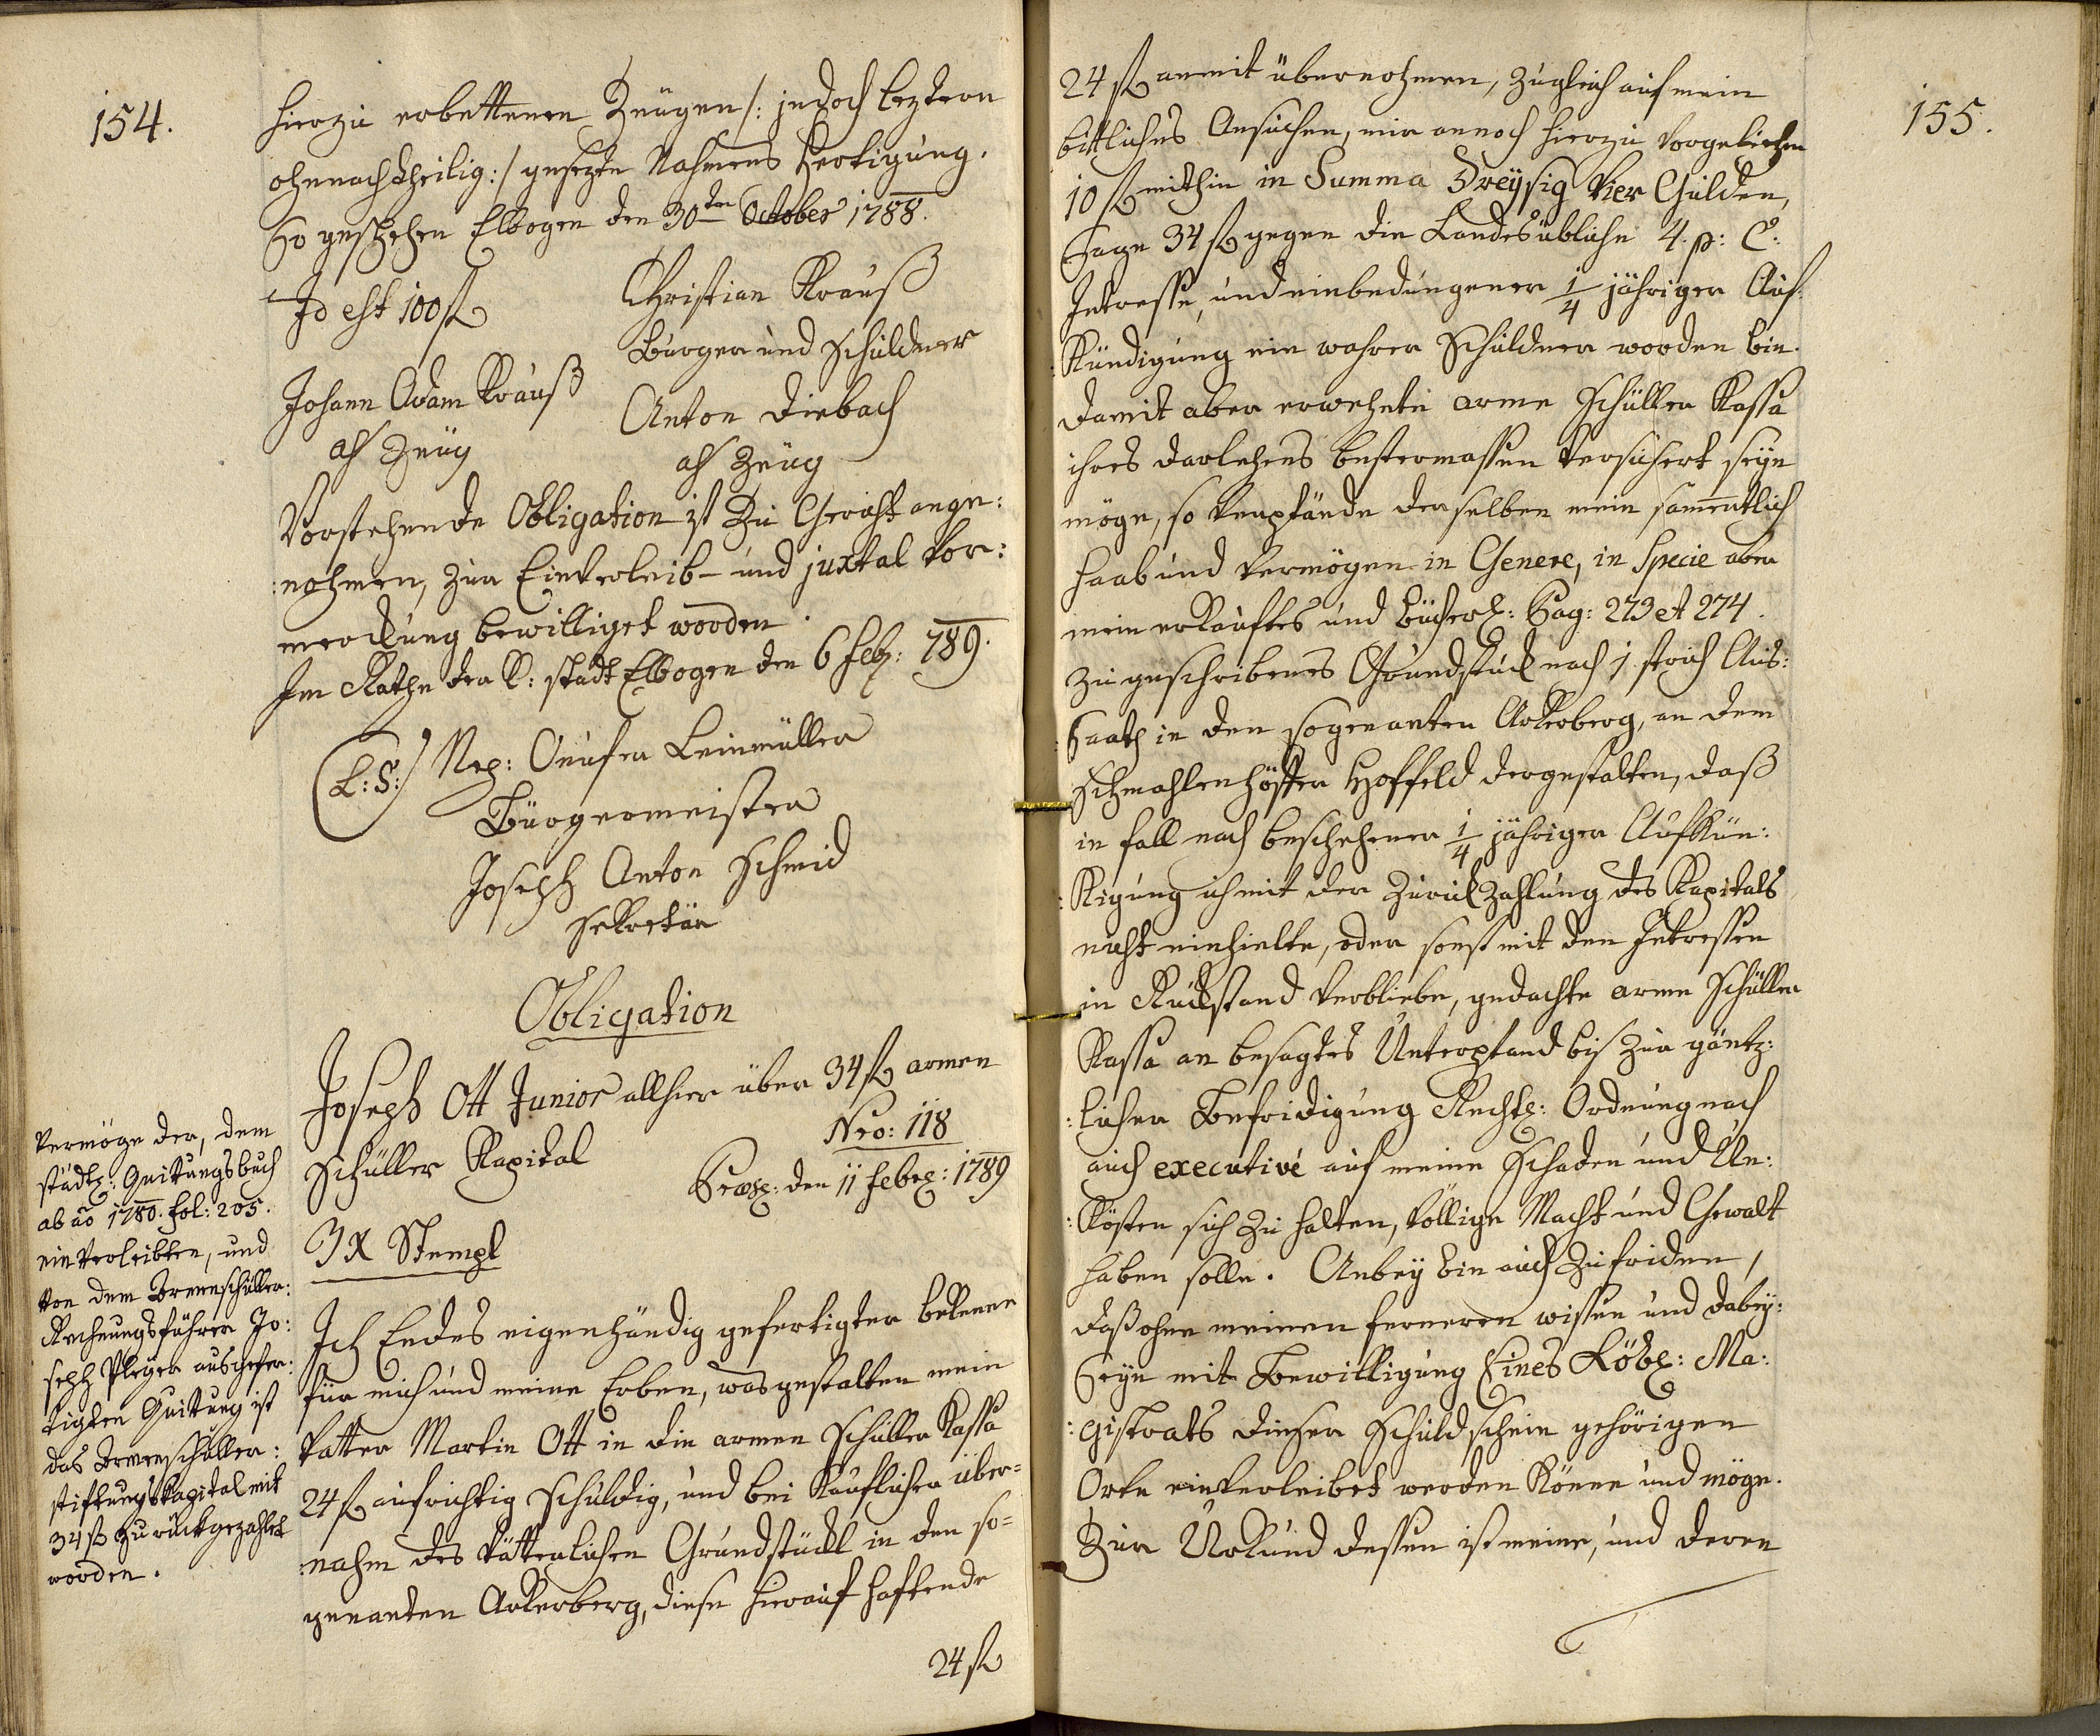 154.
hierzu erbettenen Zeugen /: jedoch leztern
ohnnachtheilig :/ gesezte Nahmens Fertigung.
So geschehen Elbogen den 30ten October 1788.
Id est 100 fl
Christian Krauß
Burger und Schuldner
Johann Adam Krauß
als Zeüg
Anton Diebach
als Zeüg
Vorstehende Obligation ist Zu Gericht ange:
:nohmen, zur Einverleib- und juxtal Vor:
merckung bewilliget worden.
Im Rathe der K: Stadt Elbogen den 6 Feb: 789.
(L: S:)
Nep: Onufer Leinmüller
Bürgermeister
Joseph Anton Schmid
Sekretär
Obligation
Joseph Ott Junior allhier über 34 fl armen
Schüller Kapital
Nro: 118
Præs: den 11 Febr: 1789
3 X Stempl
Ich Endes eigenhändig gefertigter bekenne
für mich und meine Erben, was gestalten mein
Vatter Martin Ott in die armen Schüller Kassa
24 fl aufrichtig schuldig, und bei Käuflicher über=
:nahm des Vätterlichen Grundstückl in den so=
genanten Arkerberg, diese hierauf haftende
24 fl
Vermöge der, dem
städt: Quitungsbuch
ab ao 1780. fol: 205.
einverleibten, und
von dem Armenschüller:
Rechnungsführer Jo:
seph Pleyer ausgefer:
tigten Quitung ist
das Armenschüller:
stiftungskapital mit
34 fl zurückgezahlet
worden.
155.
24 fl anmit übernohmen, zugleich auf mein
bittliches Ansuchen, mir annoch hierzu vorgeliehen
10 fl mithin in Summa Dreyßig Vier Gulden,
Sage 34 fl gegen die Landesübliche 4. p: C:
Interesse, und einbedungener 1/4 jähriger Auf:
:Kündigung ein wahrer Schuldner worden bin.
Damit aber erwehnte arme Schüller Kassa
ihres Darlehens bestermassen Versichert seyn
möge, so Verpfände derselben mein samentlich
Haab und Vermögen in Genere, in Specie aber
mein erkauftes und Bücherl: Pag: 273 et 274.
Zugeschribenes Grundstück nach 1 Strich Aus:
:Saath in den sogenanten Arkerberg, an dem
Schmahlenhöfer Hoffeld dergestalten, daß
in fall nach beschehener 1/4 jähriger Aufkün:
:Kigung ich mit der Zurückzahlung des Kapitals
nicht einhielte, oder sonst mit den Interessen
in Rückstand Verbliebe, gedachte arme Schüller
Kassa an besagtes Unterpfand bis zur gäntz:
:licher Befridigung Rechtl: Ordnung nach
auch executivè auf meine Schaden und Un:
:Kösten sich zu halten, Völlige Macht und Gewalt
haben solle. Anbey bin auch Zufriden,
daß ohne meinen ferneren wissen und dabey:
Seyn mit Bewilligung Eines Löbl: Ma:
:gistrats dieser Schuldschein gehörigen
Orte einverleibet werden Könne und möge.
Zur Urkund dessen ist meine, und deren